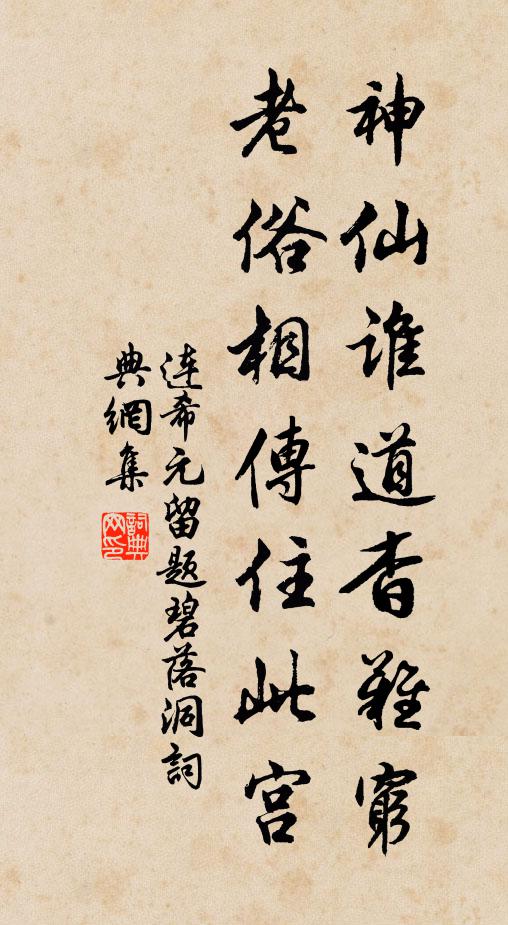 神仙誰道杳難窮
老俗相傳住此宮
連希元留題碧落洞詞
典網集
詞典
网印